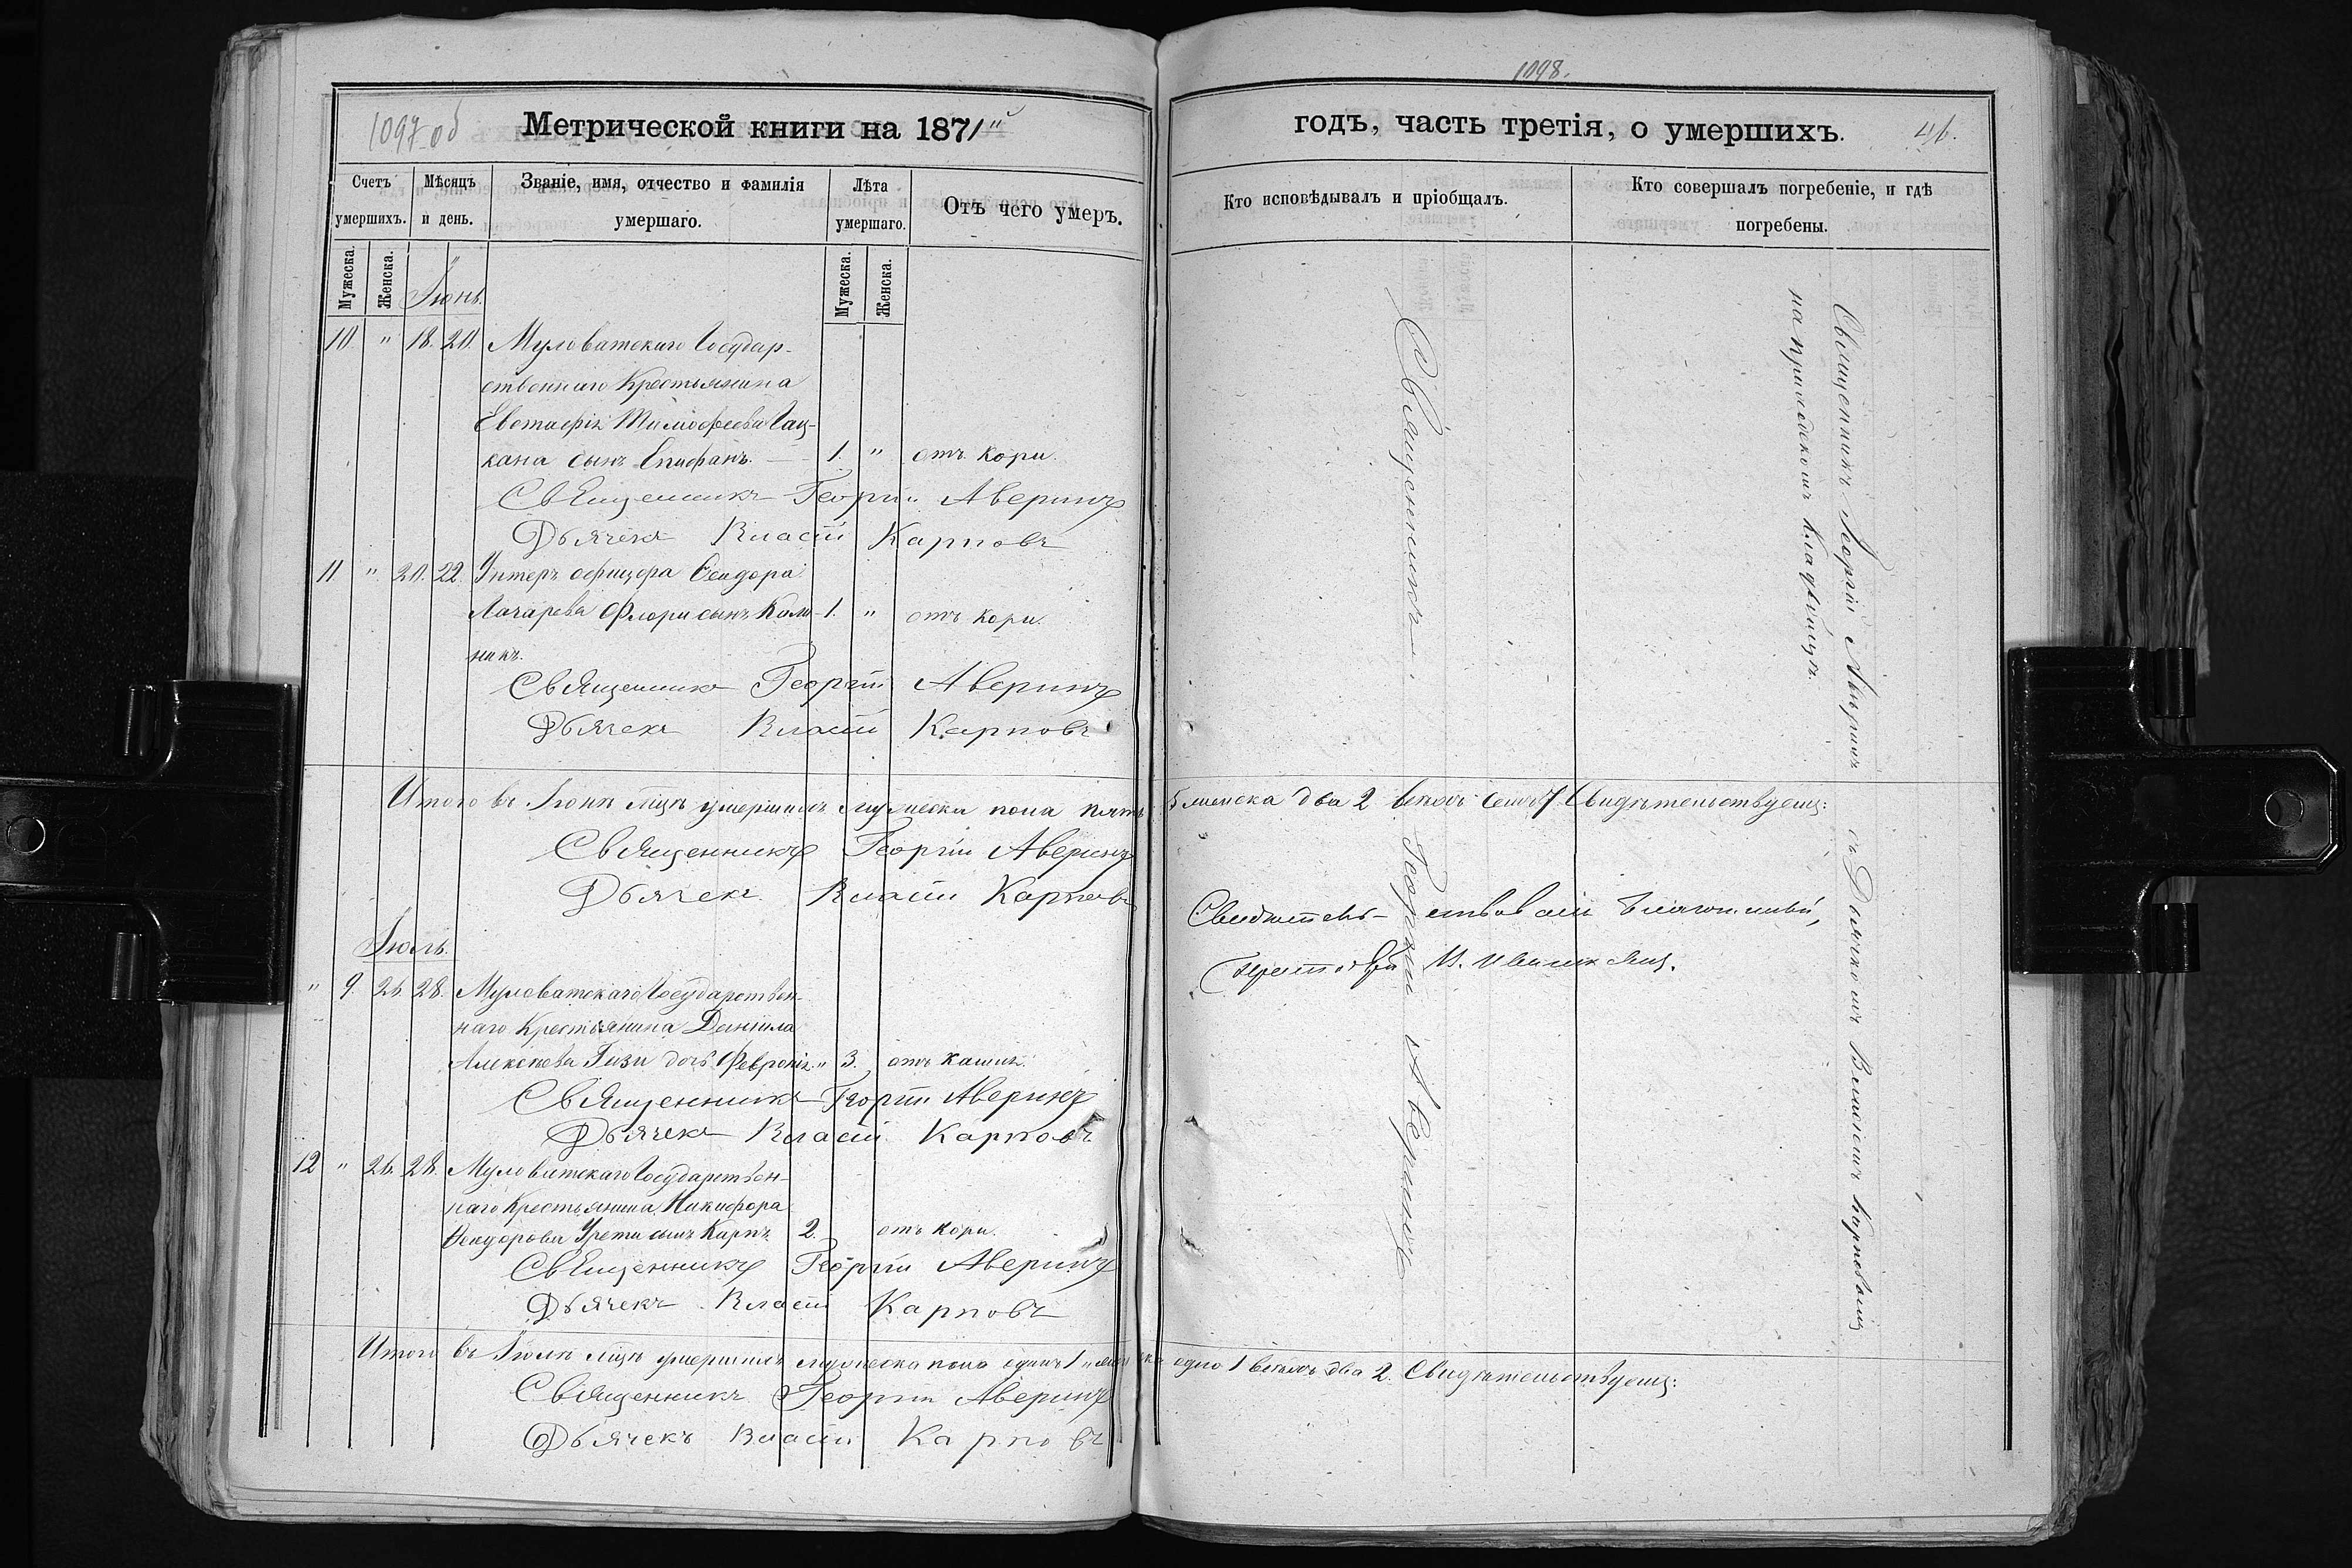 1097 об
Метрической книги на 1871й
Счетъ умершихъ.
Мѣсяцъ и день.
Званіе, имя, отчество и фамилія умершаго.
Лѣта умершаго.
Отъ чего умеръ.
Мужеска.
Женска.
Мужеска.
Женска.
Іюнь.
10. " 18. 20. Муловатскаго Государ-
ственнаго Крестьянина
Евстафія Тимофеева Гац-
кана сынъ Епифанъ. — 1. " отъ кори.
Священникъ Георгій Аверинъ
Дьячекъ Власій Карповъ
11 " 20. 22. Унтеръ офицера Сидора
Лазарева Флори сынъ
1. " отъ кори.
никъ.
Священникъ Георгій Аверинъ
Дьячекъ Власій Карповъ
Итого въ Іюнѣ мцѣ умершихъ мужеска пола пять
Священникъ Георгій Аверинъ
Дьячекъ Власій Карповъ
Іюль.
" 9. 26. 28. Муловатскаго Государствен-
наго Крестьянина Даніила
Алексѣева Гизи дочь Февронія. " 3. отъ кашля.
Священникъ Георгій Аверинъ
Дьячекъ Власій Карповъ
12 " 26. 28. Муловатскаго Государствен-
наго Крестьянина Никифора
Урети сынъ Карпъ 2. отъ кори.
Священникъ Георгій Аверинъ
Дьячекъ Власій Карповъ
Итого въ Іюлѣ мцѣ умершихъ мужеска пола единъ 1
Священникъ Георгій Аверинъ
Дьячекъ Власій Карповъ
1098.
годъ, часть третія, о умершихъ.
46.
Кто исповѣдывалъ и пріобщалъ.
Кто совершалъ погребеніе, и гдѣ погребены.
Священникъ Георгій Аверинъ
Священникъ Георгій Аверинъ съ Дьячкомъ Власіемъ Карповымъ
на приходскомъ кладбищѣ.
5 женска два 2 всѣхъ семь 7. Свидѣтельствуемъ:
Свидѣтель-ствовалъ Благочинный,
Протоіерей И.
одно 1 всѣхъ два 2. Свидѣтельствуемъ: